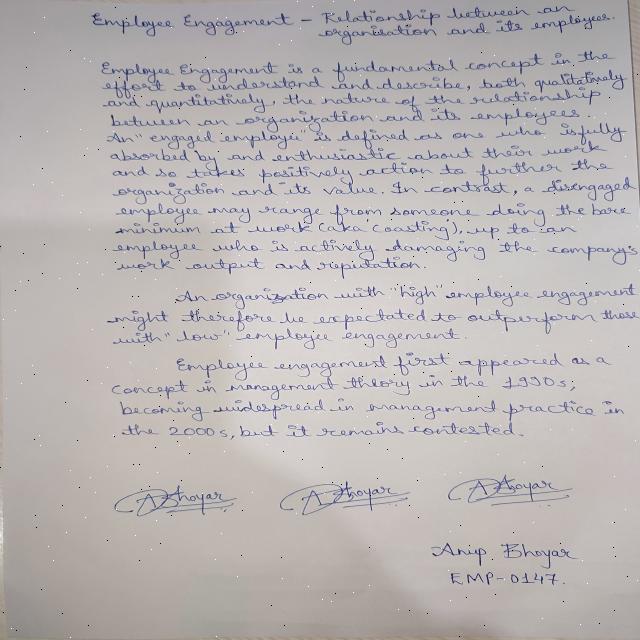 Employee Engagement - Relationship between an
organisation and its employees.
Employee Engagement is a fundamental concept in the
effort to understand and describe, both qualitatively
and quantitatively, the nature of the relationship
between an organization and its employees.
An "engaged employee" is defined as one who is fully
absorbed by and enthusiastic about their work
and so takes positively action to further the
organization and its value. In contrast, a disengaged
employee may range from someone doing the bare
minimum at work (aka coasting), up to an
employee who is actively damaging the company's
work output and reputation.
An organization with "high" employee engagement
might therefore be expectated to outperform those
with "low" employee engagement.
Employee engagement first appeared as a
concept in management theory in the 1990s,
becoming widespread in management practice in
the 2000s, but it remains contested.
ABhoyar ABhoyar ABhoyar
Anip Bhoyar
EMP-0147.